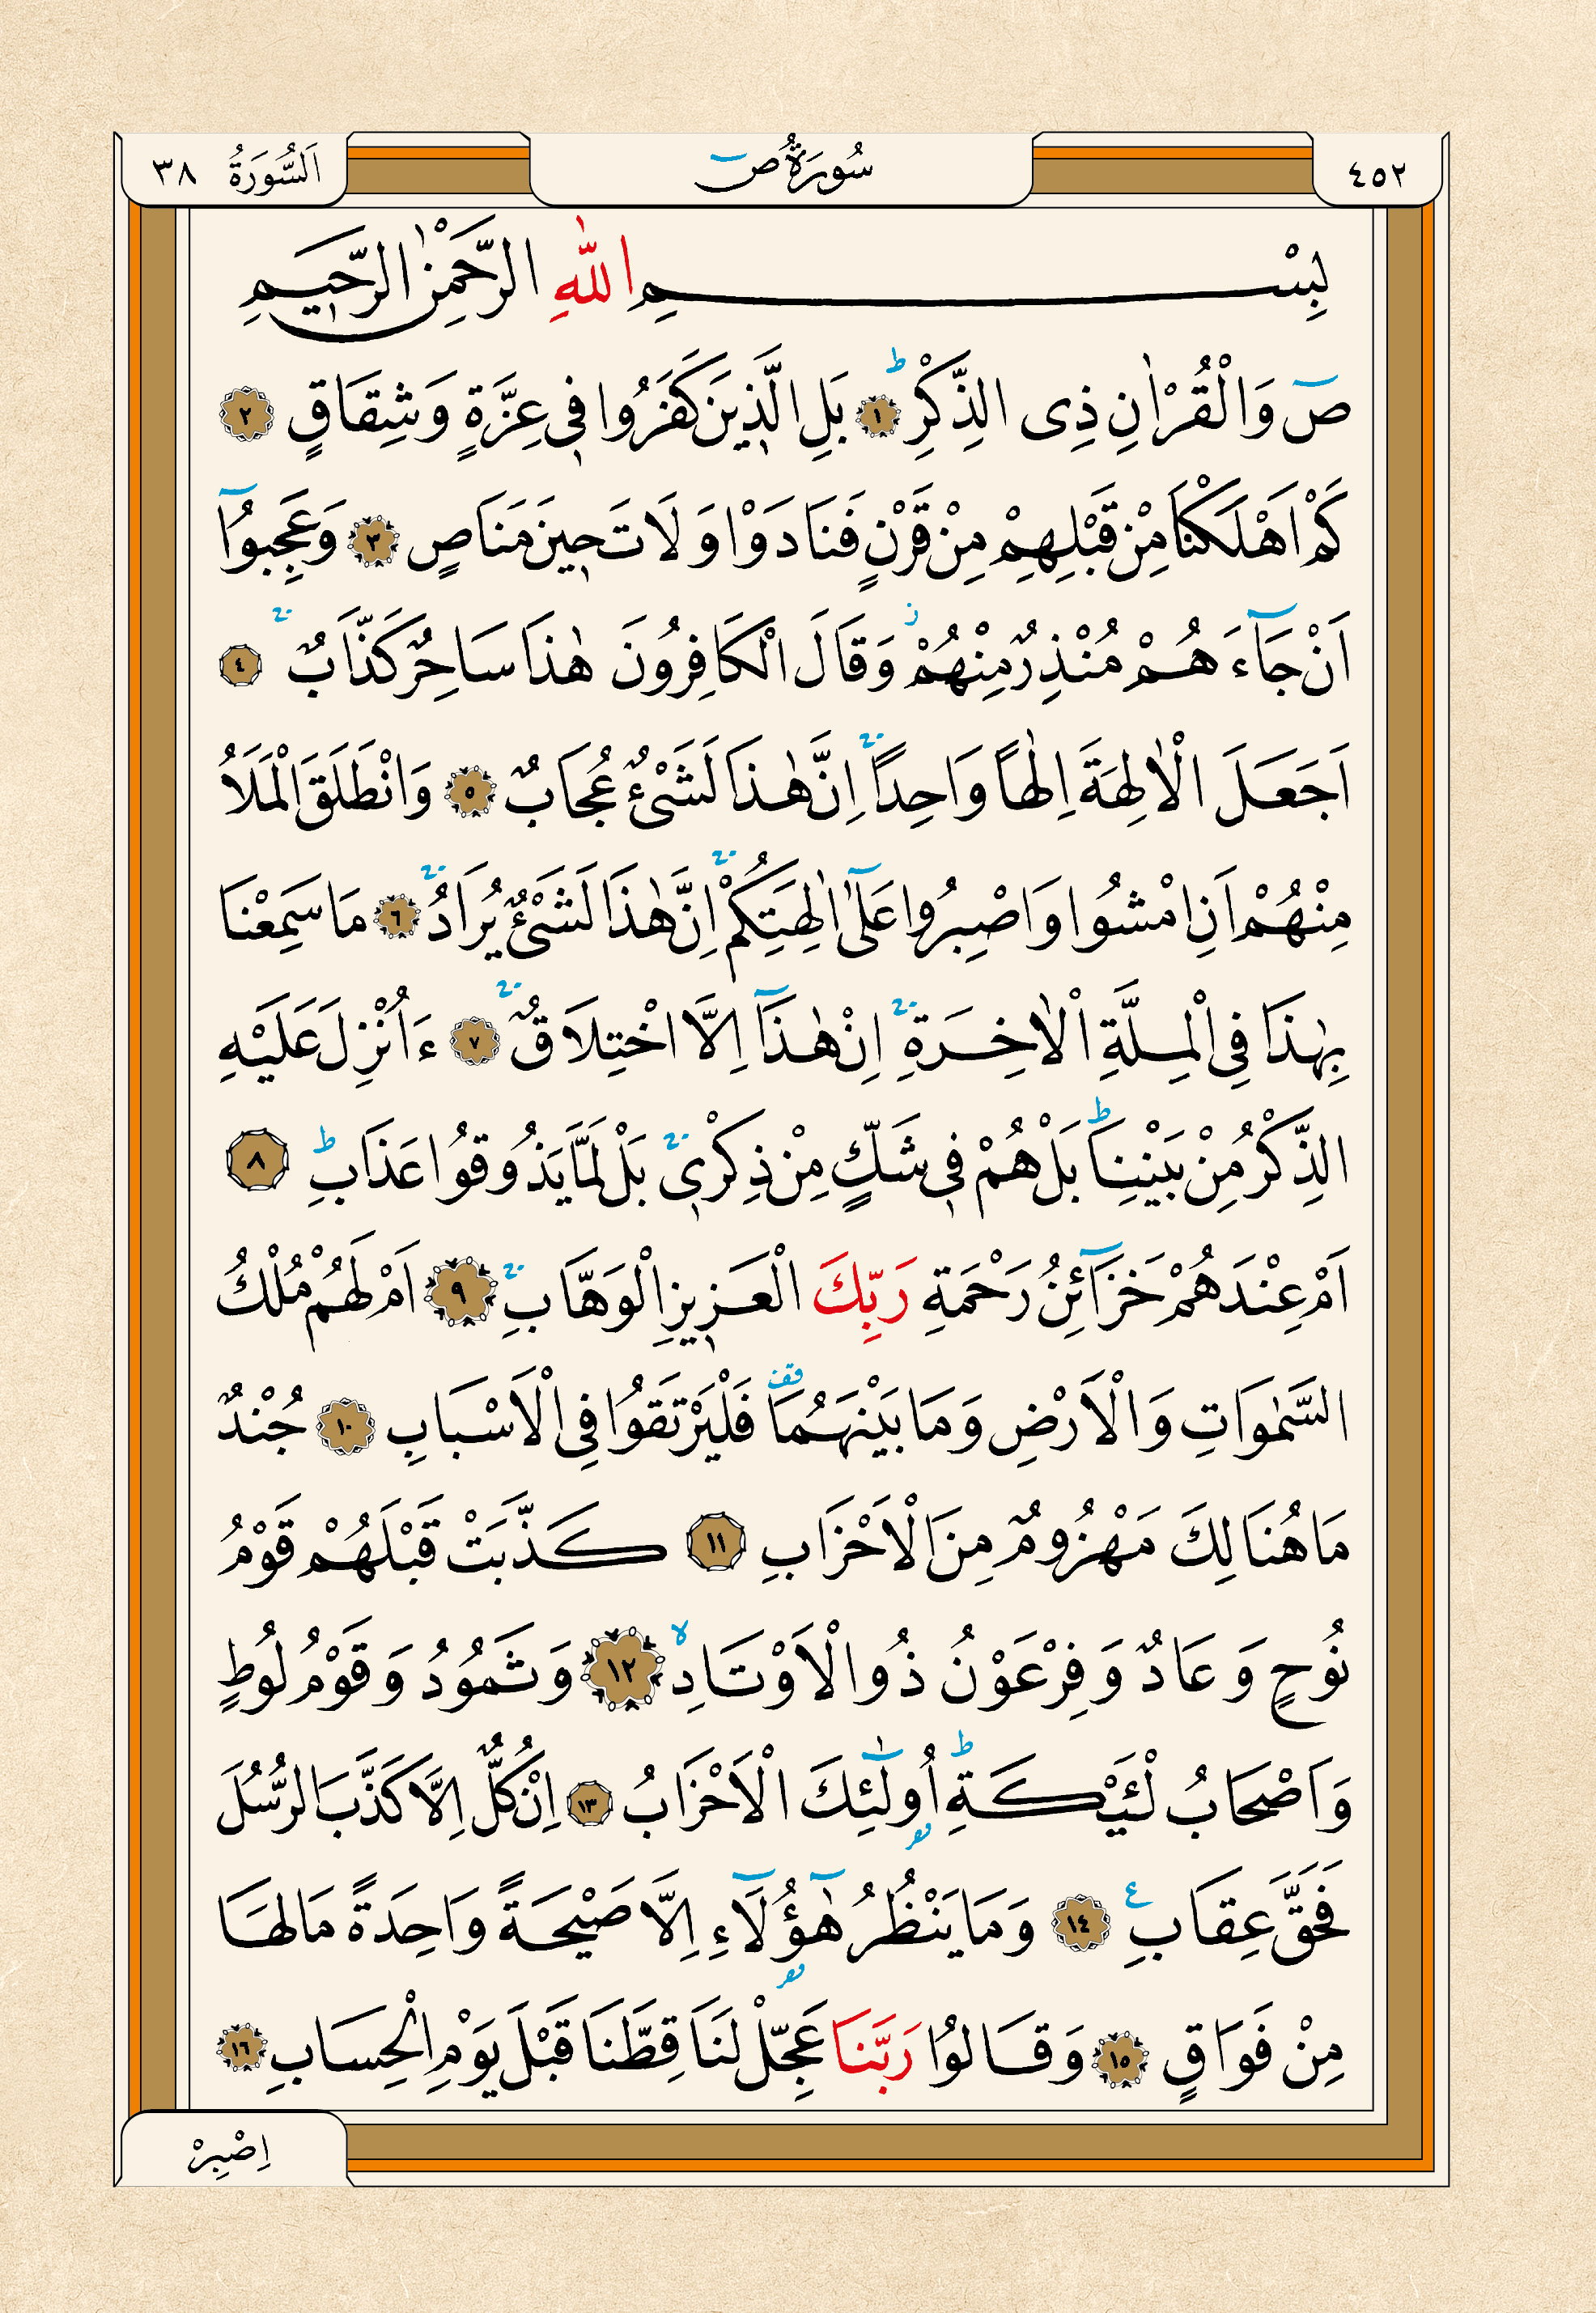 ٤٥٢
سُورَةُ صٓ
اَلسُّورَةُ ٣٨
بِسْمِ اللّٰهِ الرَّحْمٰنِ الرَّحٖيمِ
صٓ وَالْقُرْاٰنِ ذِى الذِّكْرِۜ ١ بَلِ الَّذٖينَ كَفَرُوا فٖى عِزَّةٍ وَشِقَاقٍ ٢
كَمْ اَهْلَكْنَا مِنْ قَبْلِهِمْ مِنْ قَرْنٍ فَنَادَوْا وَلَاتَ حٖينَ مَنَاصٍ ٣ وَعَجِبُٓوا
اَنْ جَٓاءَهُمْ مُنْذِرٌ مِنْهُمْؗ وَقَالَ الْكَافِرُونَ هٰذَا سَاحِرٌ كَذَّابٌۚ ٤
اَجَعَلَ الْاٰلِهَةَ اِلٰهًا وَاحِدًاۚ اِنَّ هٰذَا لَشَىْءٌ عُجَابٌ ٥ وَانْطَلَقَ الْمَلَاُ
مِنْهُمْ اَنِ امْشُوا وَاصْبِرُوا عَلٰٓى اٰلِهَتِكُمْۚ اِنَّ هٰذَا لَشَىْءٌ يُرَادُۚ ٦ مَا سَمِعْنَا
بِهٰذَا فِى الْمِلَّةِ الْاٰخِرَةِۚ اِنْ هٰذَٓا اِلَّا اخْتِلَاقٌۚ ٧ ءَاُنْزِلَ عَلَيْهِ
الذِّكْرُ مِنْ بَيْنِنَاۜ بَلْ هُمْ فٖى شَكٍّ مِنْ ذِكْرٖىۚ بَلْ لَمَّا يَذُوقُوا عَذَابِۜ ٨
اَمْ عِنْدَهُمْ خَزَٓائِنُ رَحْمَةِ رَبِّكَ الْعَزٖيزِ الْوَهَّابِۚ ٩ اَمْ لَهُمْ مُلْكُ
السَّمٰوَاتِ وَالْاَرْضِ وَمَا بَيْنَهُمَا۠ فَلْيَرْتَقُوا فِى الْاَسْبَابِ ١٠ جُنْدٌ
مَا هُنَالِكَ مَهْزُومٌ مِنَ الْاَحْزَابِ ١١ كَذَّبَتْ قَبْلَهُمْ قَوْمُ
نُوحٍ وَعَادٌ وَفِرْعَوْنُ ذُو الْاَوْتَادِۙ ١٢ وَثَمُودُ وَقَوْمُ لُوطٍ
وَاَصْحَابُ لْـَٔيْكَةِۜ اُو۬لٰٓئِكَ الْاَحْزَابُ ١٣ اِنْ كُلٌّ اِلَّا كَذَّبَ الرُّسُلَ
فَحَقَّ عِقَابِ ع ١٤ وَمَا يَنْظُرُ هٰٓؤُ۬لَٓاءِ اِلَّا صَيْحَةً وَاحِدَةً مَا لَهَا
مِنْ فَوَاقٍ ١٥ وَقَالُوا رَبَّنَا عَجِّلْ لَنَا قِطَّنَا قَبْلَ يَوْمِ الْحِسَابِ ١٦
اِصْبِرْ